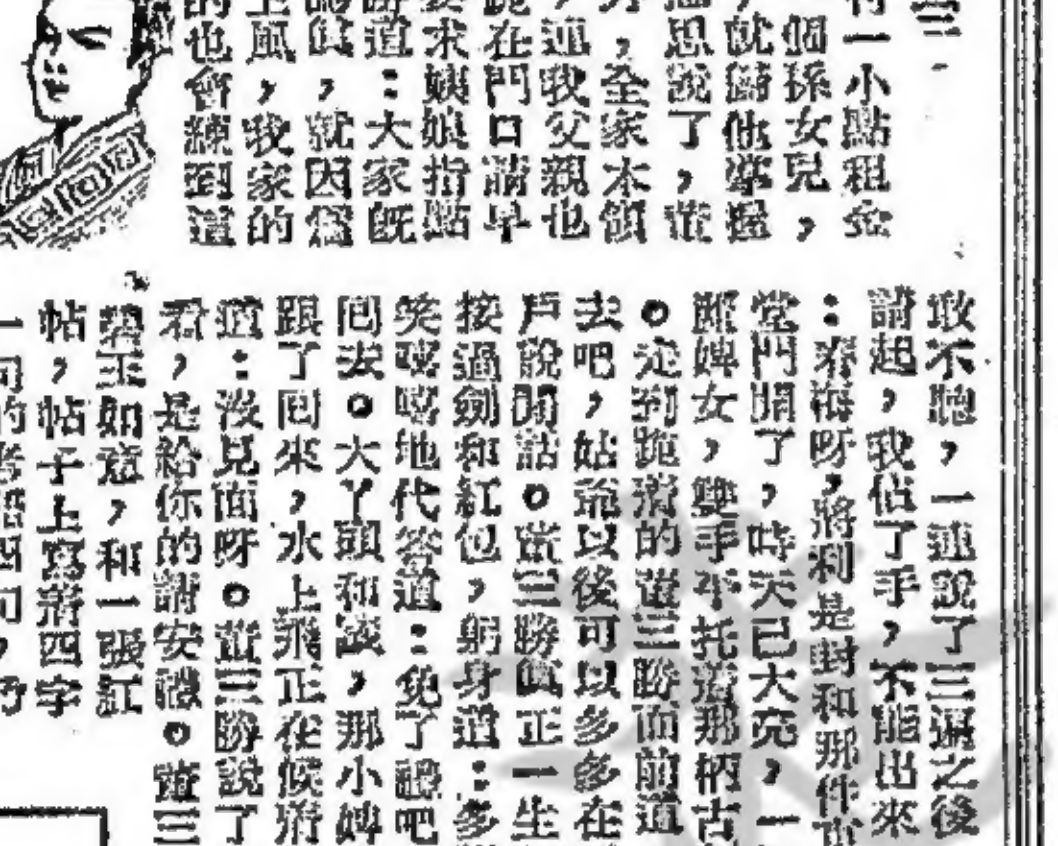 三
有一小點租金
個孫女兒,
,就歸他掌握
思說了,董
,全家本領
,連我父親也
跪在門口請早
求姨娘指點
道:大家既
真,就因為
上風,我家的
的也會練到這
敢不聽,一連說了三遍之後
請起,我佔了手,不能出來
:春梅呀,將利是封和那件
堂門開了,時天已大亮,一
離婢女,雙手平托着那柄古
。走到跪着的董三勝面前道
去吧,姑爺以後可以多多在
戶說閒話。董三勝真正一生
接過劍和紅包,躬身道:多
笑嘻嘻地代答道:免了謝吧
回去。大丫頭和議,那小婢
跟了回來,水上飛正在候着
道:沒見面呀。董三勝說了
君,是給你的請安禮。董三
碧玉如意,和一張紅
帖,帖子上寫着四字
一句的
四句,